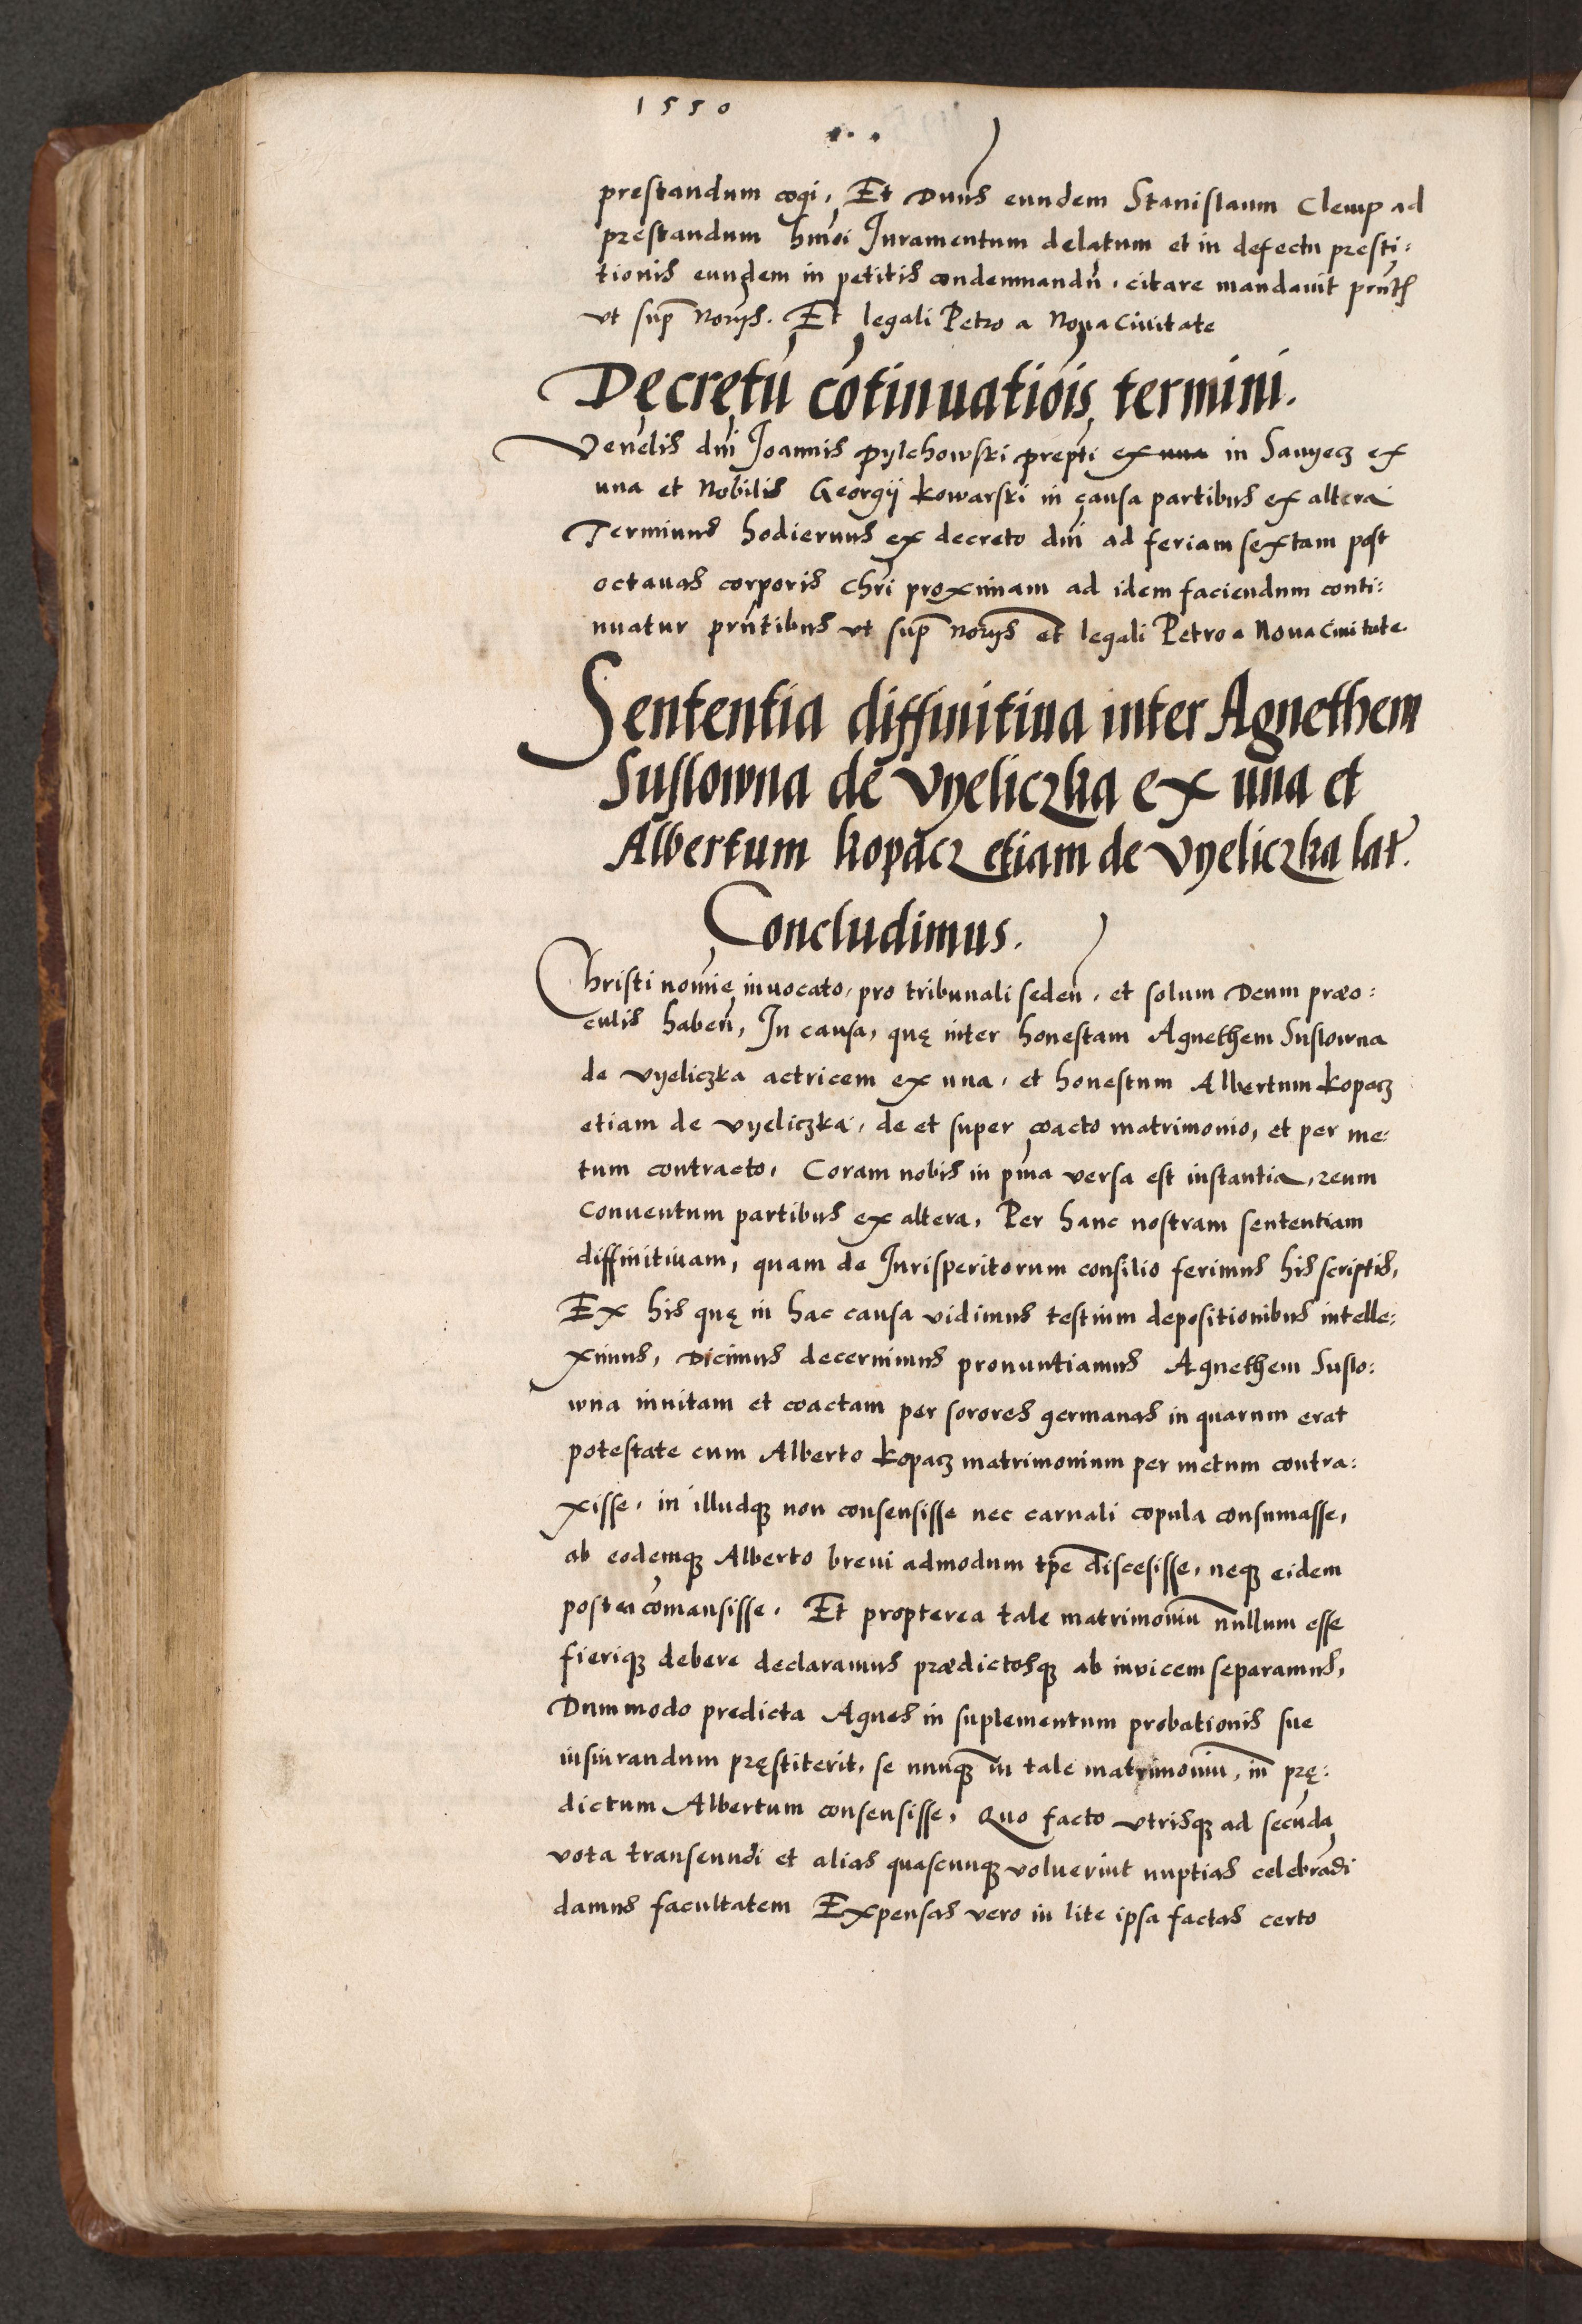 1550
prestandum cogi, Et Dnus eundem Stanislaum Clemp ad
prestandum hmoi Juramentum delatum et in defectu presti:
tionis eundem in petitis condemnandu, citare mandavit prntes
ut sup Norijs. Et legali Petro a Nova Civitate
Decretu cotinuatiois termini.
Venelis dni Joannis Pylchowski prepti ex una in Sanyecz ex
una et Nobilis Georgij Kowarski in causa partibus ex altera
Terminus hodiernus ex decreto dni ad feriam sextam post
octavas corporis Chri proximam ad idem faciendum conti:
nuatur prntibus ut sup Norijs et legali Petro a Nova Civitate
Sententia diffinitiva inter Agnethem
Suslowna de Vyeliczka ex una et
Albertum Kopacz etiam de Vyeliczka lat.
Concludimus.
Christi nomie invocato, pro tribunali seden, et solum Deum præo:
culis haben, In causa, quę inter honestam Agnethem Suslowna
de Vyeliczka actricem ex una, et honestum Albertum Kopacz
etiam de Vyeliczka, de et super coacto matrimonio, et per me:
tum contracto, Coram nobis in pma versa est instantia, reum
Conventum partibus ex altera, Per hanc nostram sententiam
diffinitivam, quam de Jurisperitorum consilio ferimus his scriptis,
Ex his quę in hac causa vidimus testium depositionibus intelle:
ximus, Dicimus decernimus pronuntiamus Agnethem Suslo:
wna invitam et coactam per sorores germanas in quarum erat
potestate cum Alberto Kopacz matrimonium per metum contra:
xisse, in illudq non consensisse nec carnali copula consumasse,
ab eodemq Alberto brevi admodum tpe discesisse, neq eidem
postea comansisse. Et propterea tale matrimoniu nullum esse
fieriq debere declaramus prædictosq ab invicem separamus,
Dummodo predicta Agnes in suplementum probationis sue
iusiurandum pręstiterit, se nunq in tale matrimoniu, in prę:
dictum Albertum consensisse, Quo facto utrisq ad secuda
vota transeundi et alias quascunq voluerint nuptias celebradi
damus facultatem Expensas vero in lite ipsa factas certo